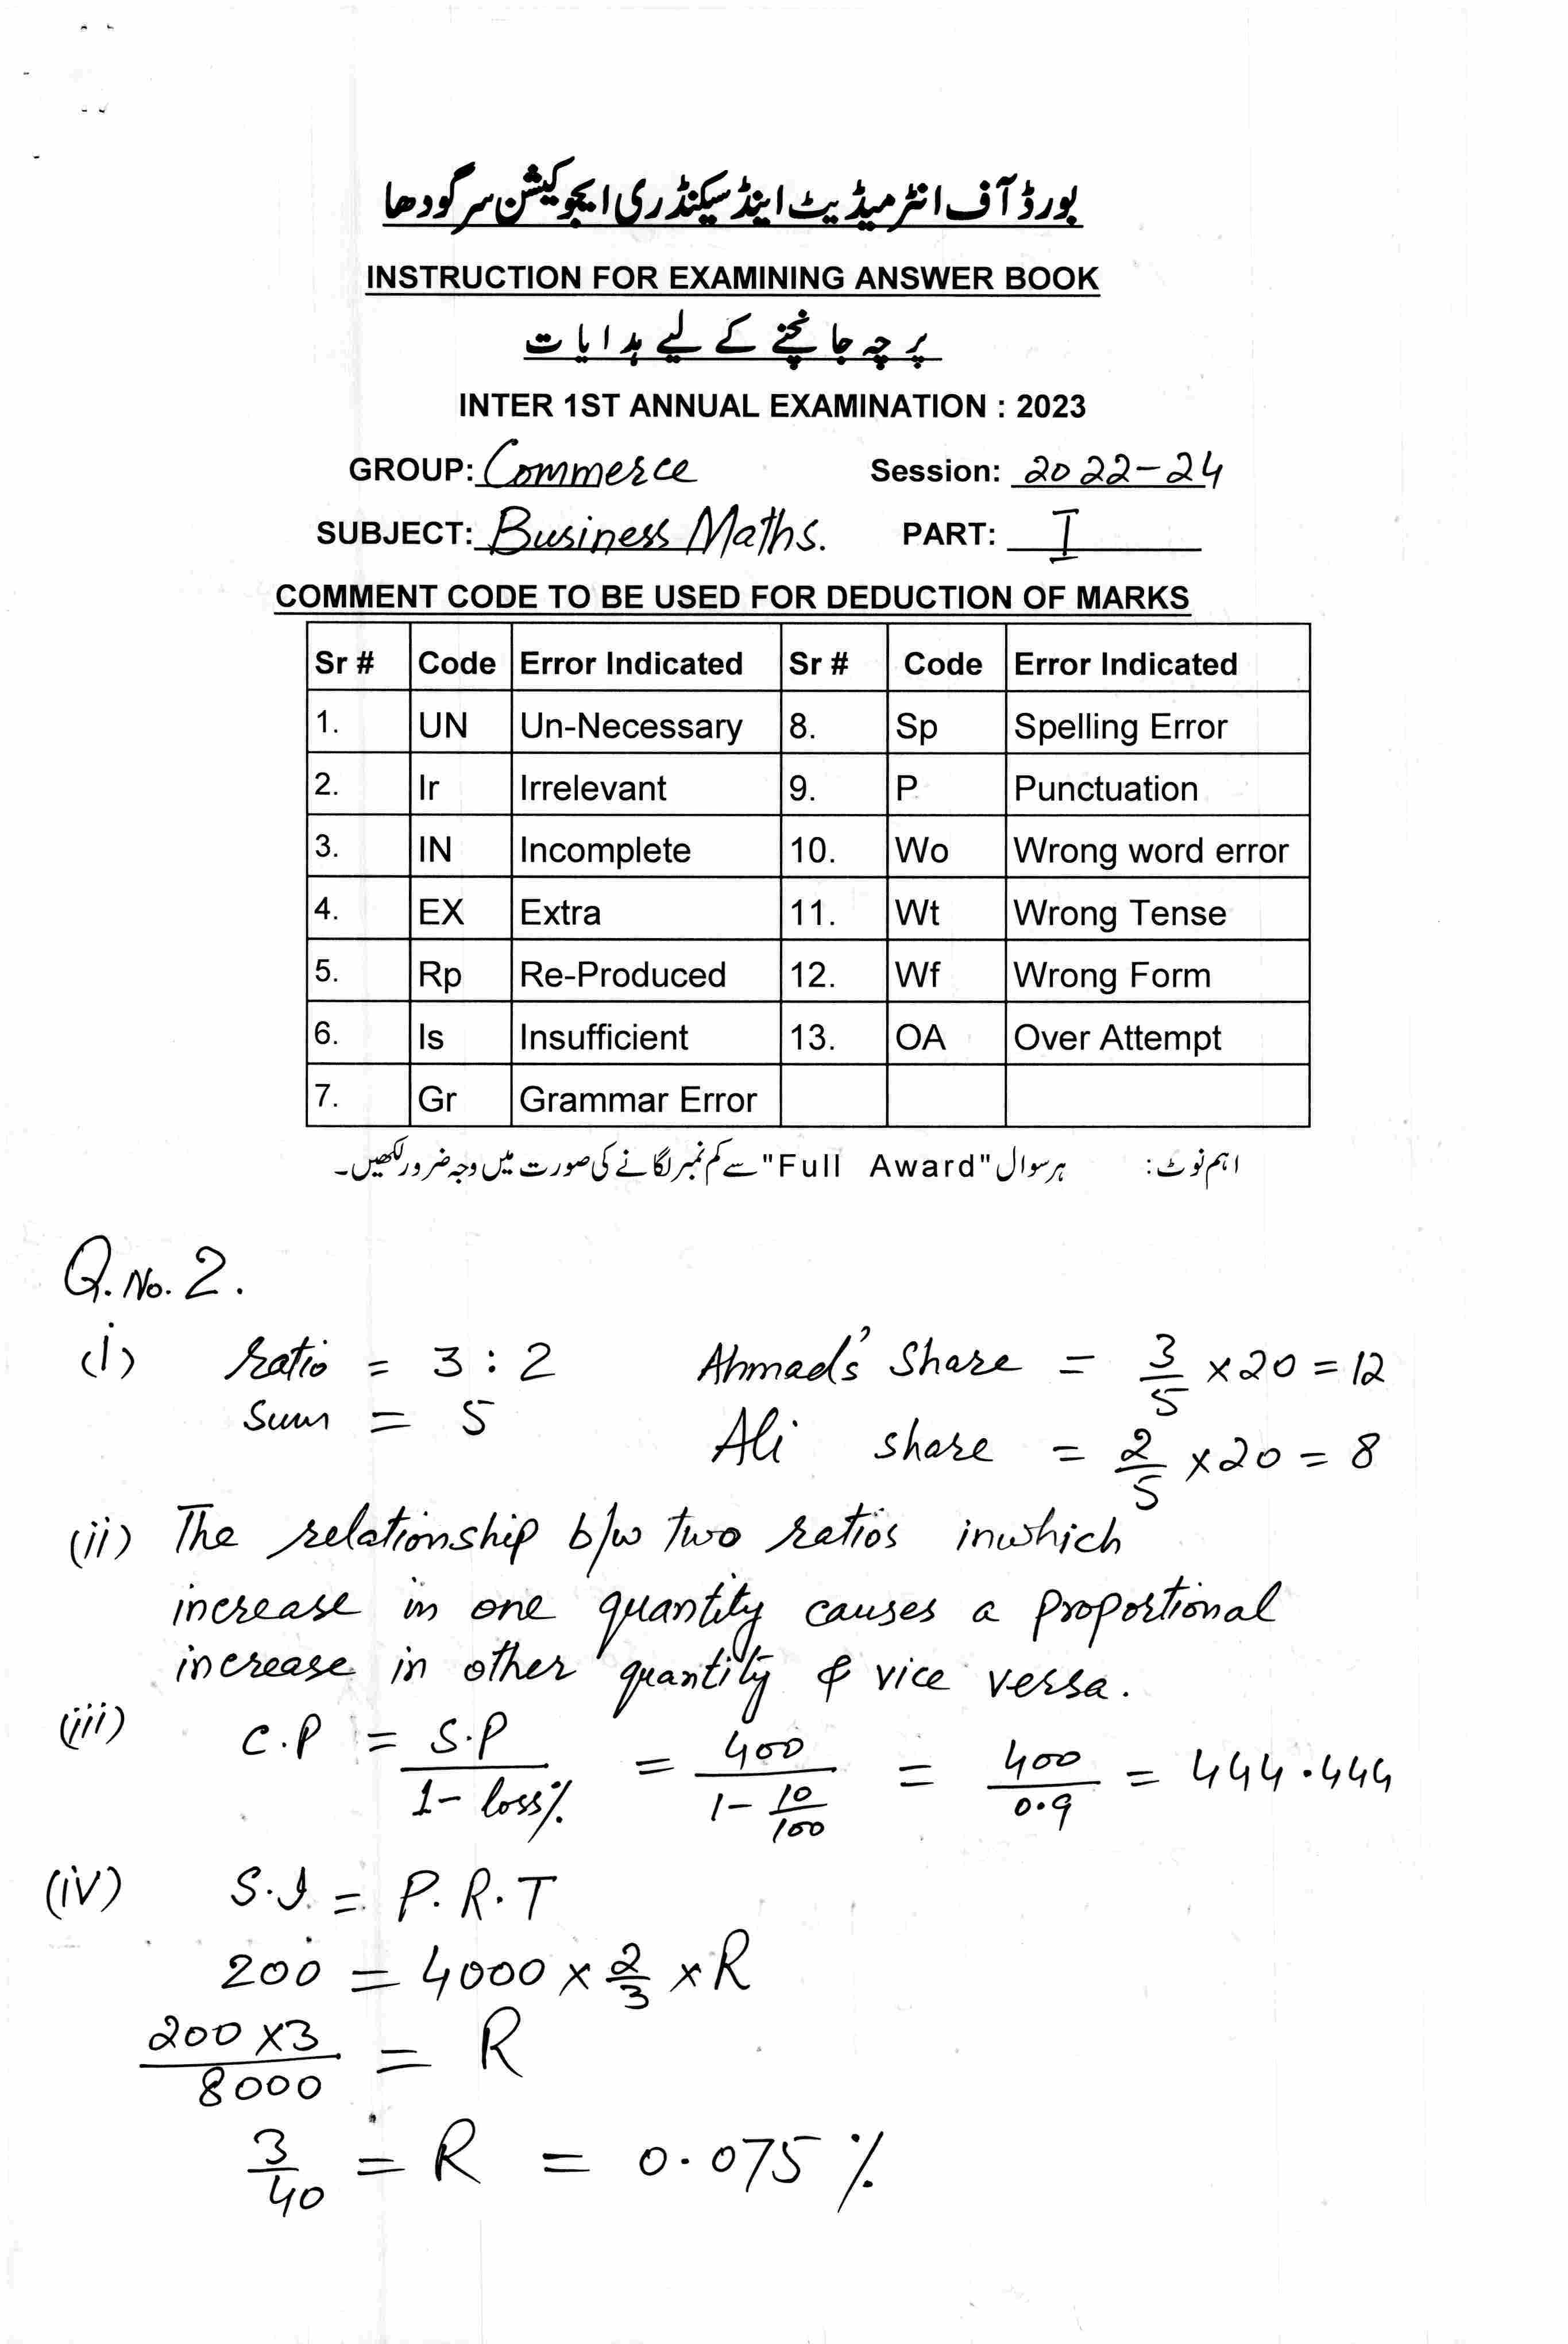 بورڈ آف انٹرمیڈیٹ اینڈ سیکنڈری ایجوکیشن سرگودھا
INSTRUCTION FOR EXAMINING ANSWER BOOK
پرچہ جانچنے کے لیے ہدایات
INTER 1ST ANNUAL EXAMINATION : 2023
GROUP: Commerce Session: 2022-24
SUBJECT: Business Maths. PART: I
COMMENT CODE TO BE USED FOR DEDUCTION OF MARKS
Sr # Code Error Indicated Sr # Code Error Indicated
1. UN Un-Necessary 8. Sp Spelling Error
2. Ir Irrelevant 9. P Punctuation
3. IN Incomplete 10. Wo Wrong word error
4. EX Extra 11. Wt Wrong Tense
5. Rp Re-Produced 12. Wf Wrong Form
6. Is Insufficient 13. OA Over Attempt
7. Gr Grammar Error
اہم نوٹ: ہر سوال "Full Award" سے کم نمبر لگانے کی صورت میں وجہ ضرور لکھیں۔
Q. No. 2.
(i) ratio = 3 : 2 Ahmad's Share = 3/5 × 20 = 12
Sum = 5 Ali share = 2/5 × 20 = 8
(ii) The relationship b/w two ratios inwhich
increase in one quantity causes a proportional
increase in other quantity & vice versa.
(iii) C.P = S.P / 1 - loss% = 400 / 1 - 10/100 = 400 / 0.9 = 444.444
(iv) S.I. = P. R. T
200 = 4000 × 2/3 × R
200 × 3 / 8000 = R
3/40 = R = 0.075 %